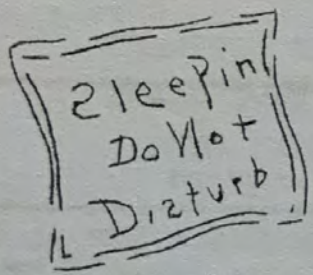 SleePin
Do Not
Disturb